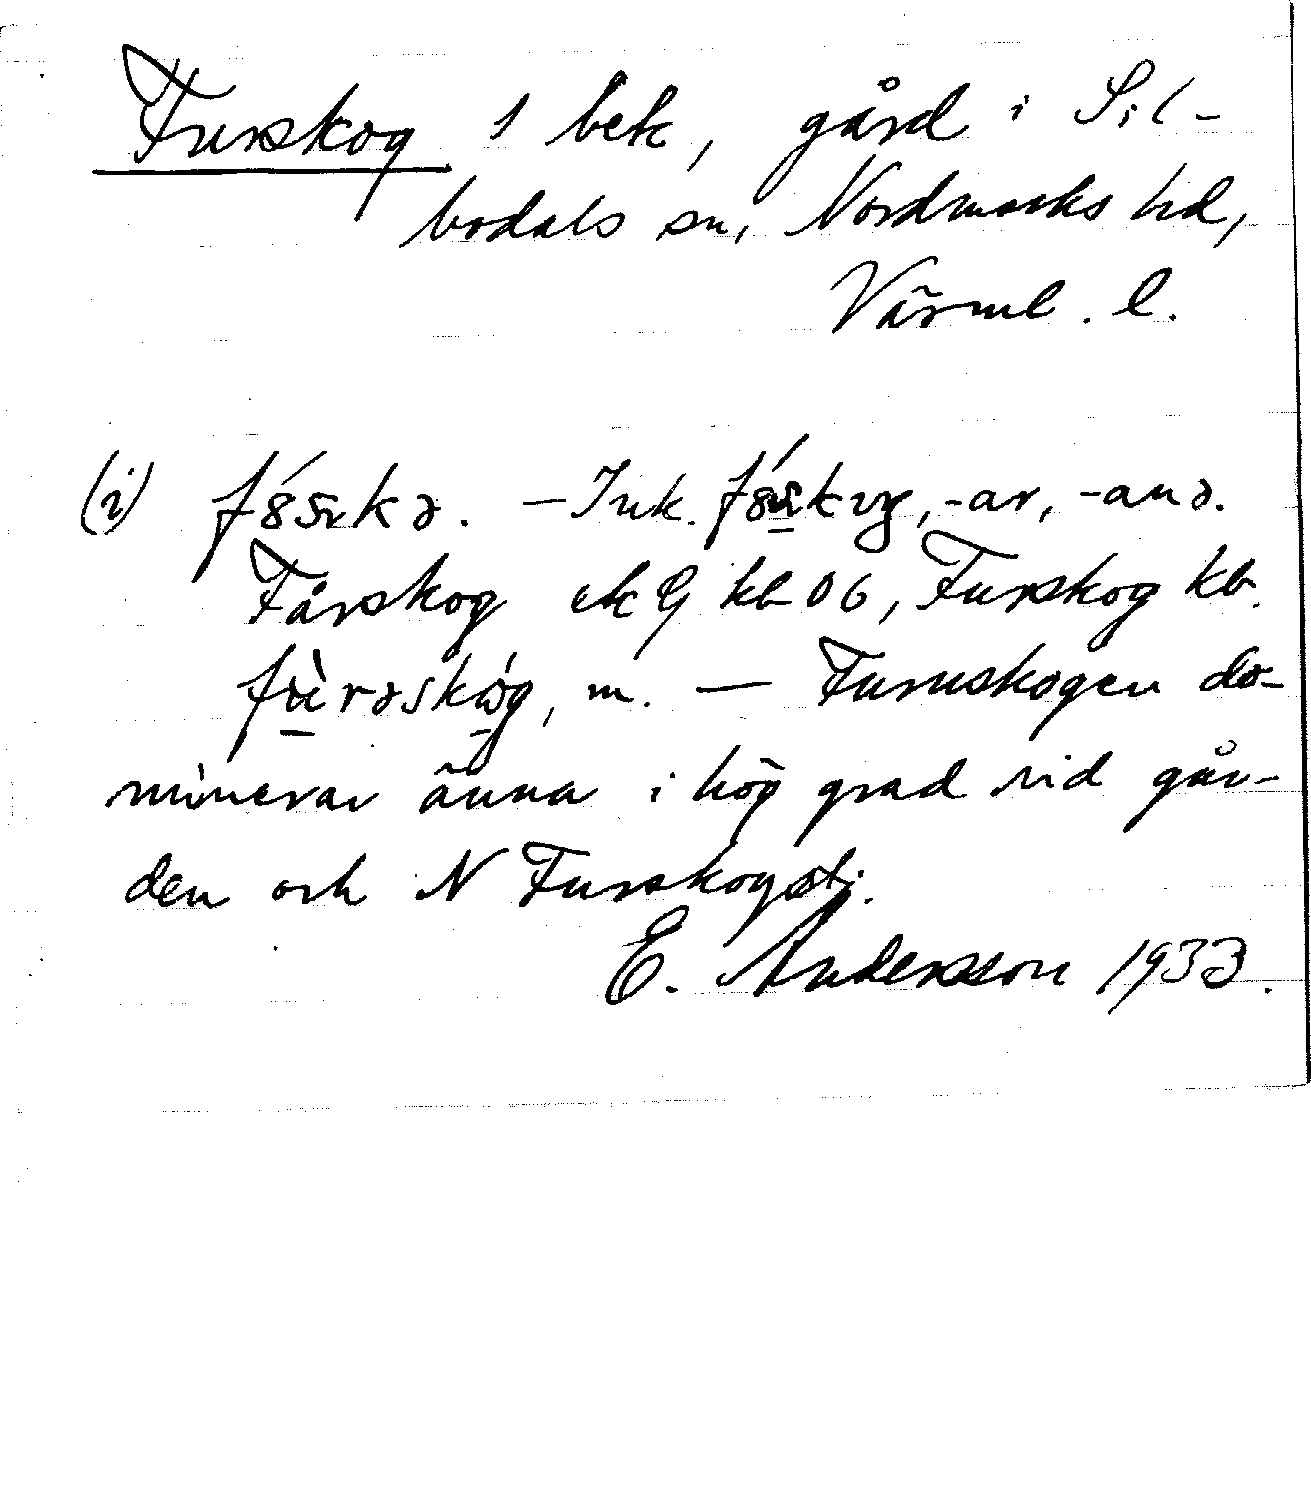 Furskog 1 bek, gård i Sil-
bodals sn, Nordmarks hd,
Värml. l.
(i) — Ink. -ar, -anə.
Fårskog ekG kb 06, Furskog kb.
m. — Furuskogen do-
minerar ännu i hög grad vid går-
den och N Furskogstj.
E. Andersson 1933.